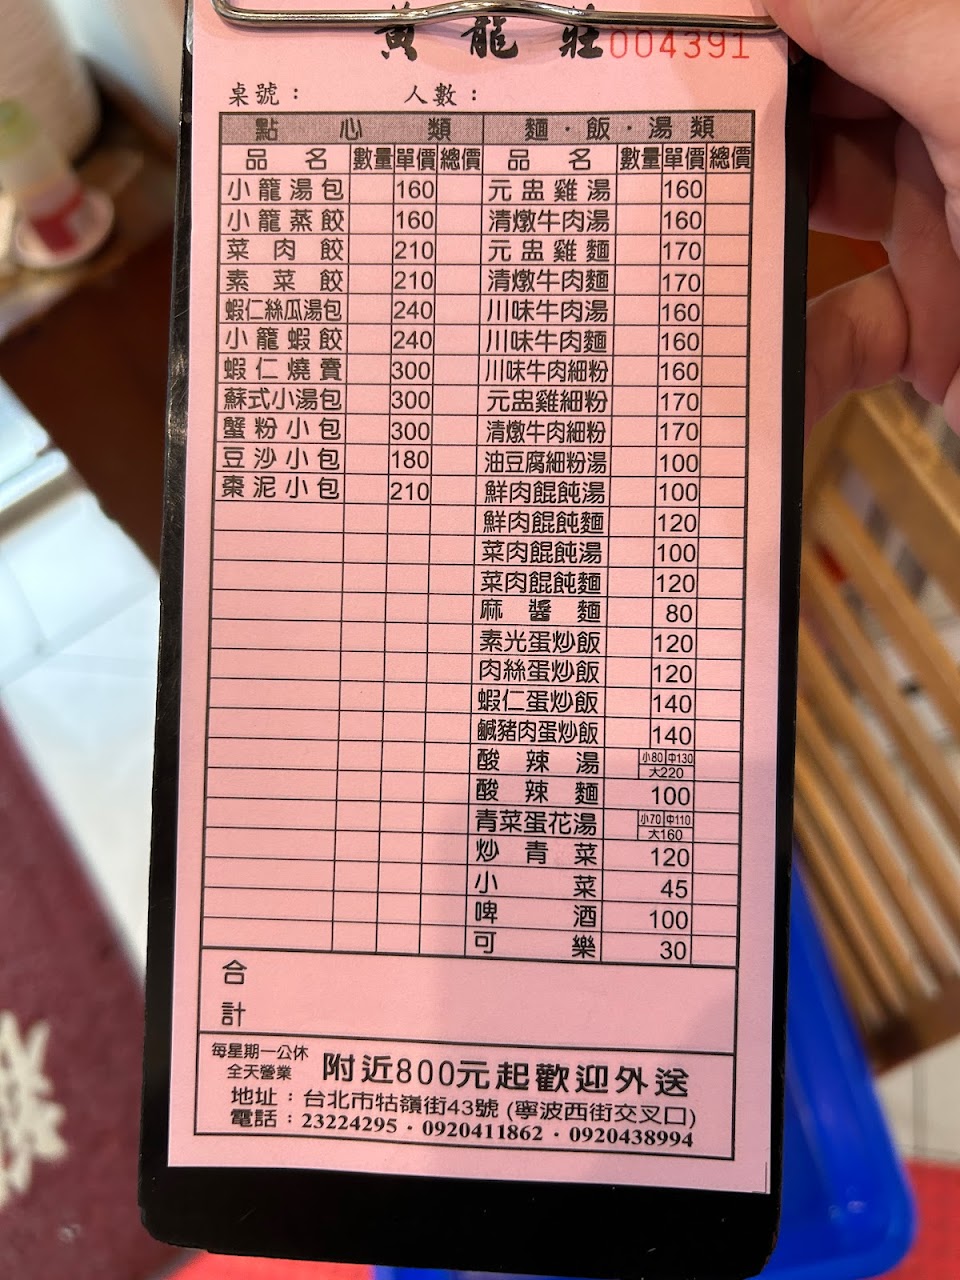 黄龍莊 004391
桌號： 人數：
點心類 麵・飯・湯類
品名 數量 單價 總價 品名 數量 單價 總價
小籠湯包 160 元盅雞湯 160
小籠蒸餃 160 清燉牛肉湯 160
菜肉餃 210 元盅雞麵 170
素菜餃 210 清燉牛肉麵 170
蝦仁絲瓜湯包 240 川味牛肉湯 160
小籠蝦餃 240 川味牛肉麵 160
蝦仁燒賣 300 川味牛肉細粉 160
蘇式小湯包 300 元盅雞細粉 170
蟹粉小包 300 清燉牛肉細粉 170
豆沙小包 180 油豆腐細粉湯 100
棗泥小包 210 鮮肉餛飩湯 100
鮮肉餛飩麵 120
菜肉餛飩湯 100
菜肉餛飩麵 120
麻醬麵 80
素光蛋炒飯 120
肉絲蛋炒飯 120
蝦仁蛋炒飯 140
鹹豬肉蛋炒飯 140
酸辣湯 小80 中130 大220
酸辣麵 100
青菜蛋花湯 小70 中110 大160
炒青菜 120
小菜 45
啤酒 100
可樂 30
合計
每星期一公休
全天營業
附近800元起歡迎外送
地址：台北市牯嶺街43號(寧波西街交叉口)
電話：23224295・0920411862・0920438994